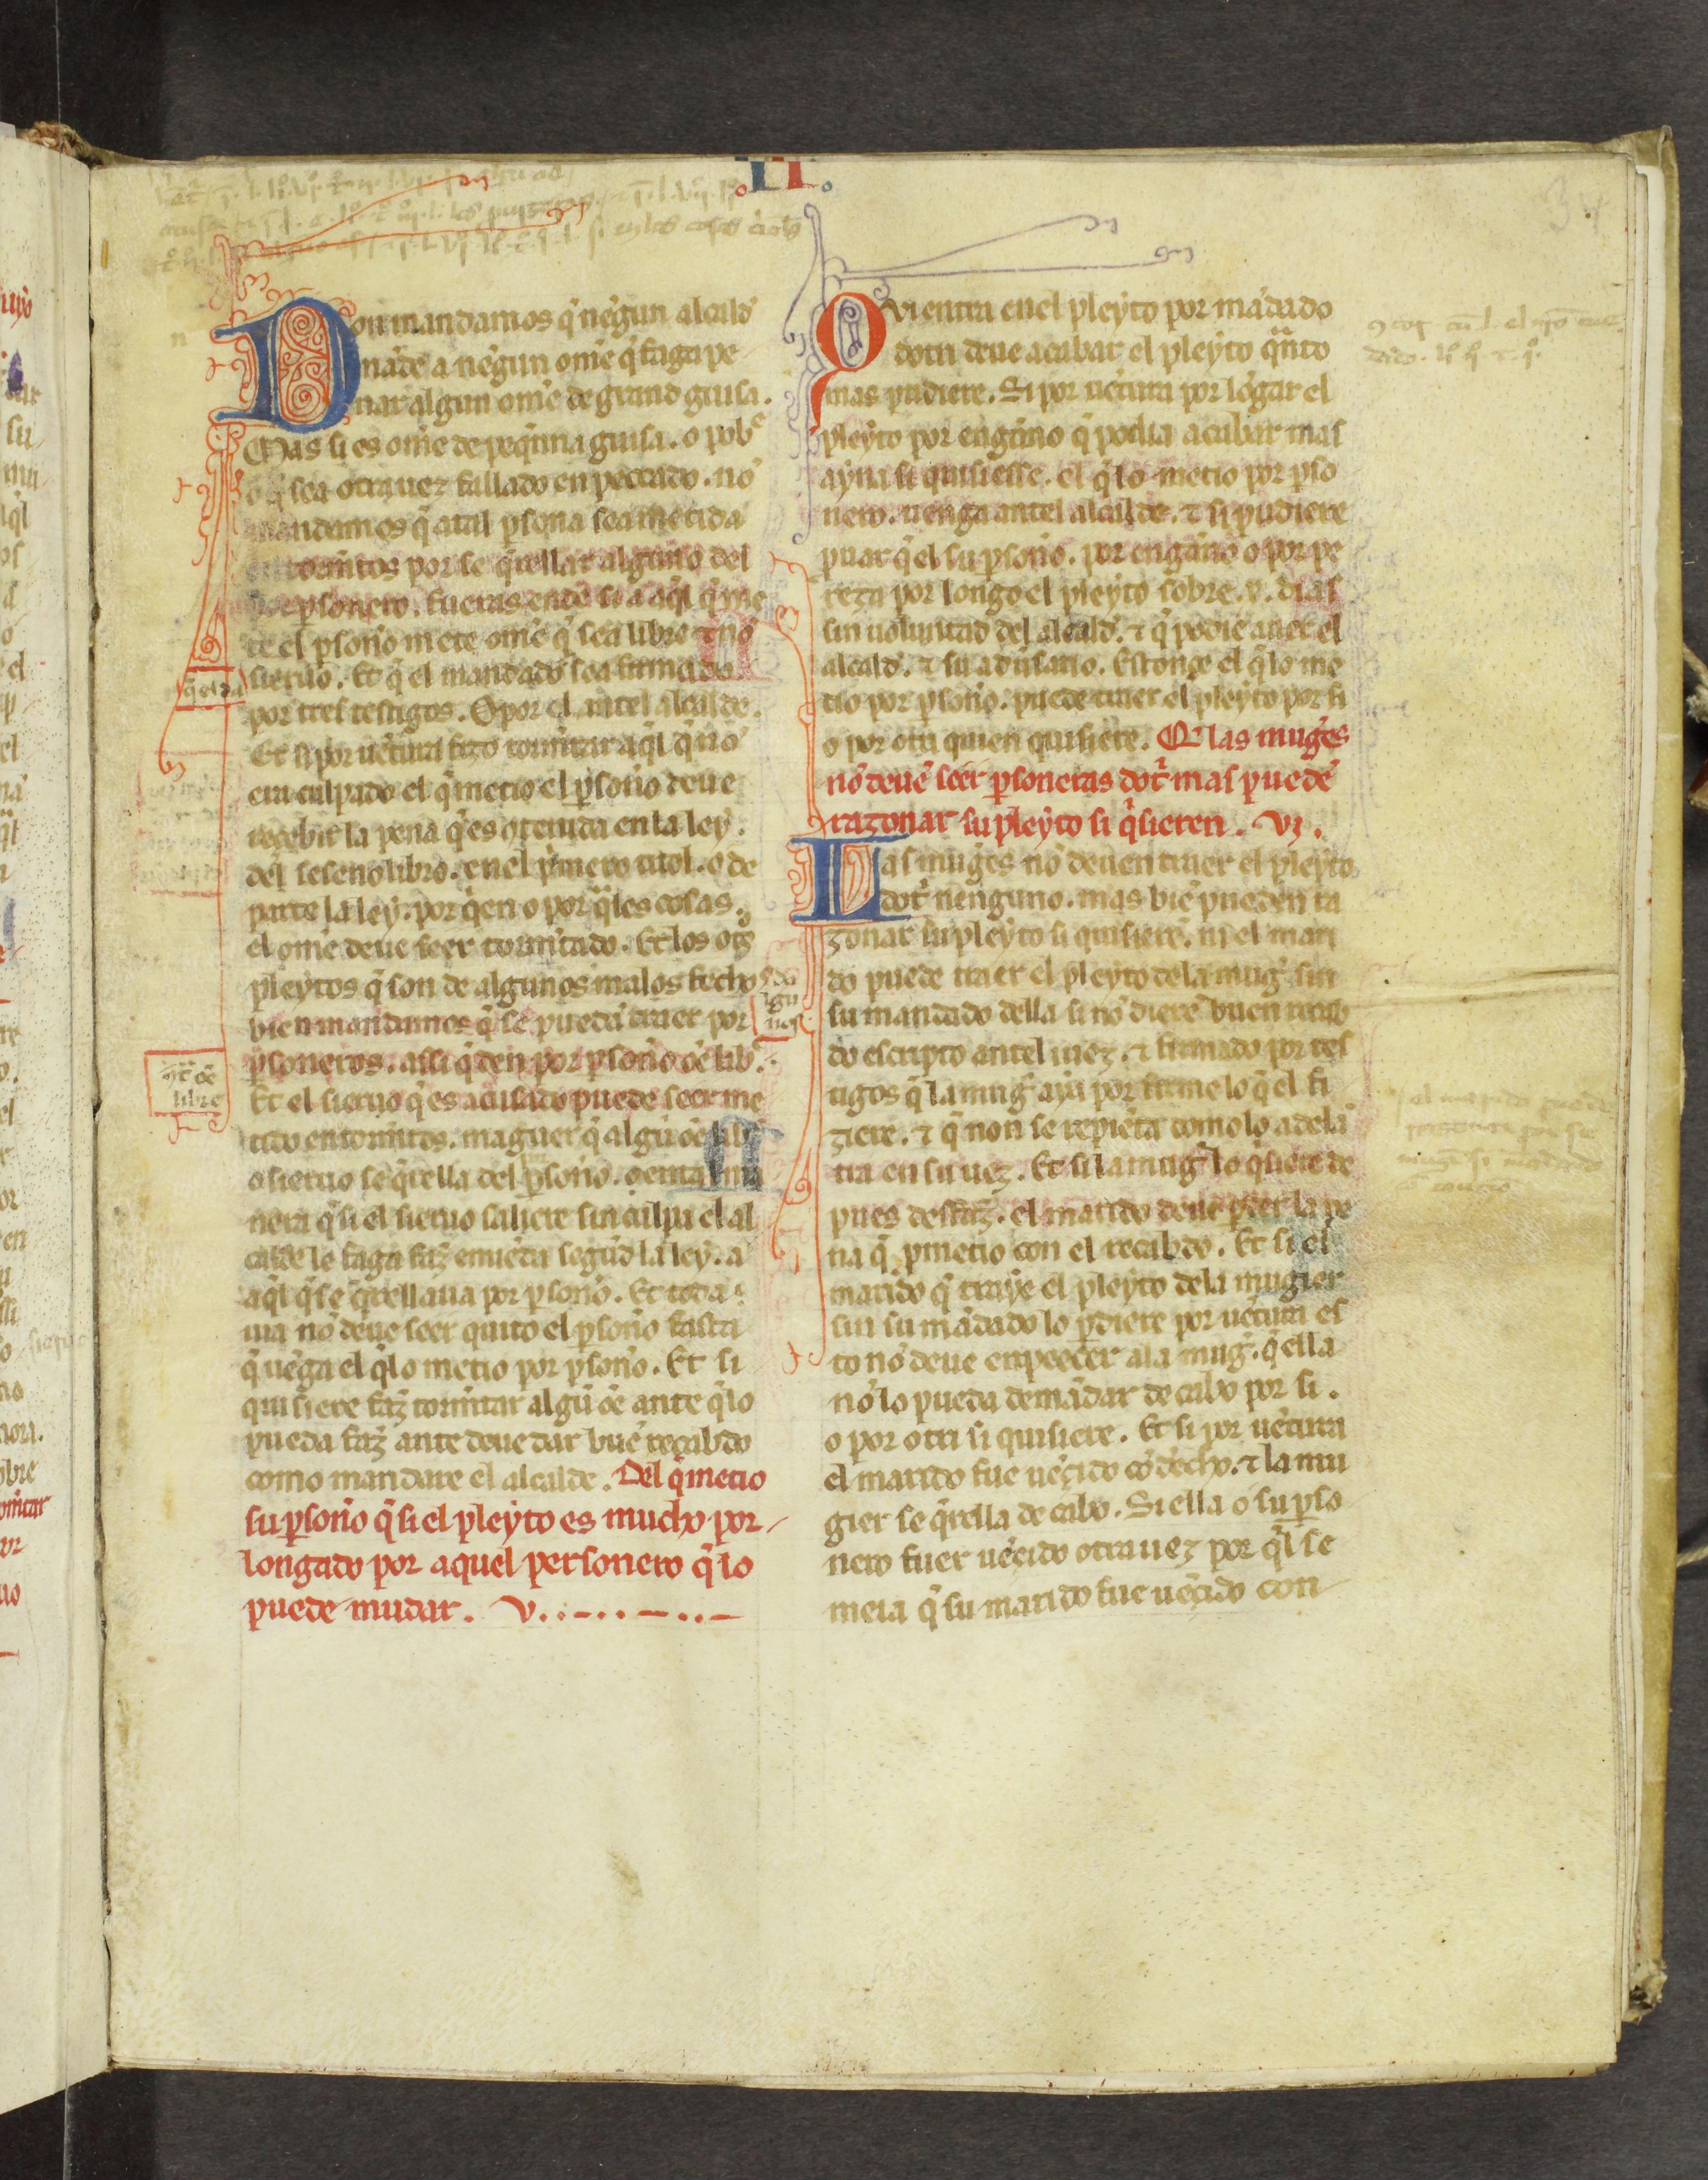 .II.
34
Don mandamos q̃ negun alcalđ
nađe a negun ome q̃ faga pe
nar algun ome de grand guisa.
Mas si es ome de peq̃nna guisa. o pobᵉ
o q̃ sea otra uez fallado en peccado. nō
mandamos q̃ atal ꝑsona sea metida
en tormētos por se q̃rellar alguno del
ꝑsonero. fueras ende si a aq̃l q̃ me
te el ꝑsoño mete ome q̃ sea libre ⁊ nō
sieruo. Et q̃ el mandado sea firmado
por tres testigos. O por el antel alcalde.
Et si por uētura fizo tormētar aq̃l q̃ nō
era culpado el q̃ metio el ꝑsoño deue
recebir la pena q̃ es otenida en la ley.
del seseno libro. en el p̃mero titol. o de
parte la ley. por q̃en o por q̃les cosas.
el ome deue seer tormētado. Et los otᵒs
pleytos q̃ son de algunos malos fechos
bien mandamos q̃ se puedā traer por
ꝑsoneros. assi q̃ den por ꝑsoño oē libᵉ.
Et el sieruo q̃ es acusado puede seer me
tido en tormētos. maguer q̃ algū oē libᵉ
o sieruo se q̃rella del ꝑsoño. o en tal ma
nera q̃ si el sieruo saliere sin culpa el al
calde le faga faz̃ emiēda segūd la ley. a
aq̃l q̃ se q̃rellaua por ꝑsoño. Et toda
uia nō deue seer quito el ꝑsoño fasta
q̃ uēga el q̃ lo metio por ꝑsoño. Et si
quisiere faz̃ tormētar algū oē ante q̃ lo
pueda faz̃ ante deue dar buē recabdo
como mandare el alcalde. Del q̃ metio
su ꝑsoño q̃ si el pleyto es mucho por
longado por aquel personero q̃ lo
puede mudar. V.
q̃ el da
oē
libre
Qvi entra en el pleyto por mādado
dotri deue acabar el pleyto q̃nto
mas pudiere. Si por uētura por logar el
pleyto por engāno q̃ podia acabar mas
ayna si quisiesse. el q̃ lo metio por ꝑso
nero. uenga antel alcalde. ⁊ si pudiere
puar q̃ el su ꝑsoño. por engāno o por pe
reza por longo el pleyto sobre .v. dias
sin uoluntad del alcalđ. ⁊ q̃ podie auer el
alcalđ. ⁊ su aduersario. Estonçe el q̃ lo me
tio por ꝑsoño. puede traer el pleyto por si
o por otri quien quisiere. Q̃ las mugˀes
nō deuē seer ꝑsoneras dotr̃ mas puedē
razonar su pleyto si q̃sieren. VI.
Las mugˀes nō deuen traer el pleyto
dotr̃ nenguno. mas biē pueden ra
zonar su pleyto si quisierē. ni el mari
do puede traer el pleyto de la mugˀ. sin
su mandado della si nō diere buen recab
do escripto antel iuez. ⁊ firmado por tes
tigos q̃ la mugˀ aya por firme lo q̃ el fi
ziere. ⁊ q̃ non se repiēta como lo adelā
tra en su uez. Et si la mugˀ lo q̃siere de
pues desfaz̃. el marido deue ꝑder la pe
na q̃ ꝑmetio con el recabdo. Et si el
marido q̃ traye el pleyto dela mugier
sin su mādado lo ꝑdiere por uētura es
to nō deue enpeeçer ala mugˀ. q̃ ella
nō lo pueda demādar de cabo por si.
o por otri si quisiere. Et si por uētura
el marido fue uēçido cō đecho. ⁊ la mu
gier se q̃rella de cabo. Si ella o su ꝑso
nero fuer uēçido otra uez por q̃l se
mēta q̃ su marido fue uēçido con